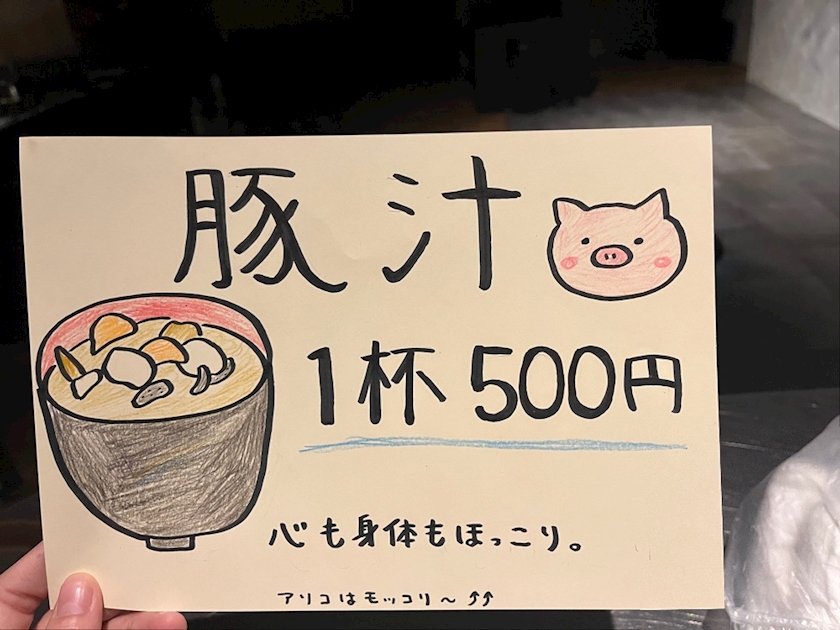 豚汁
1杯 500円
心も身体もほっこり。
アソコはモッコリ～⤴⤴